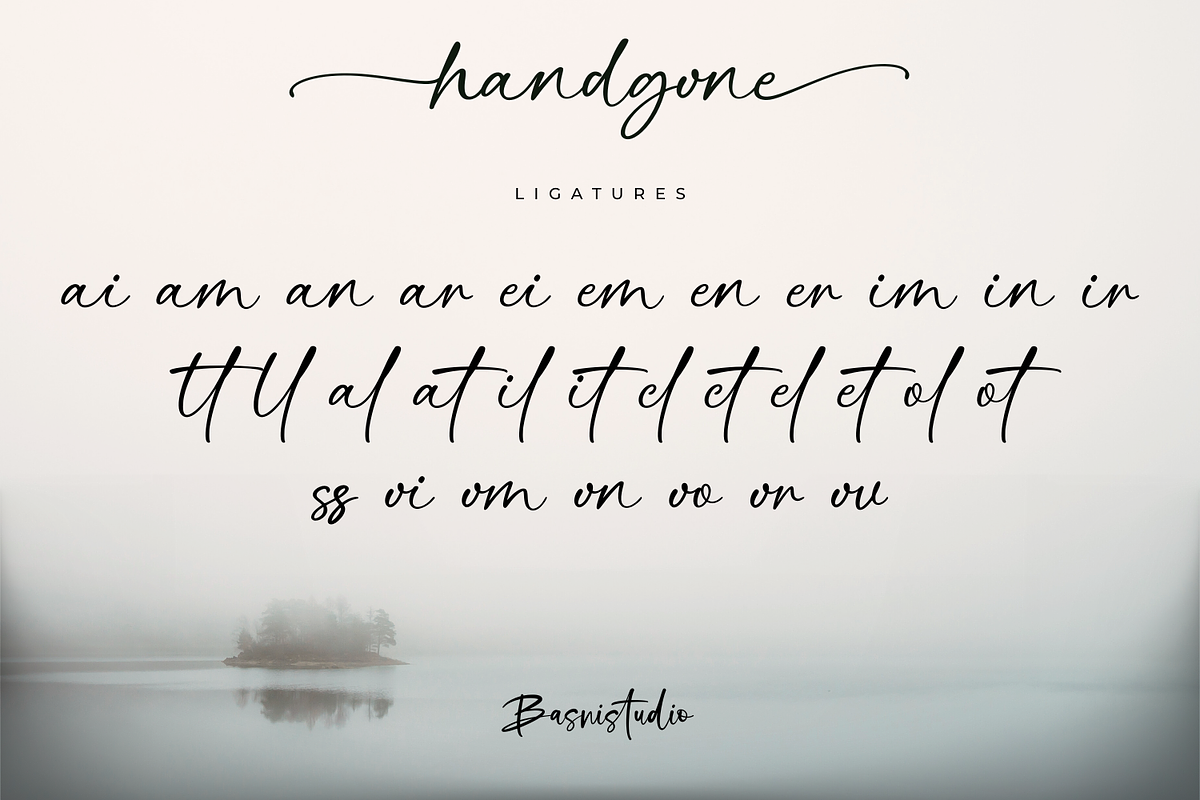 handgone
LIGATURES
ai am an ar ei em en er im in ir
tt ll al at il it cl ct el et ol ot
ss oi om on oo or ov
Basnistudio